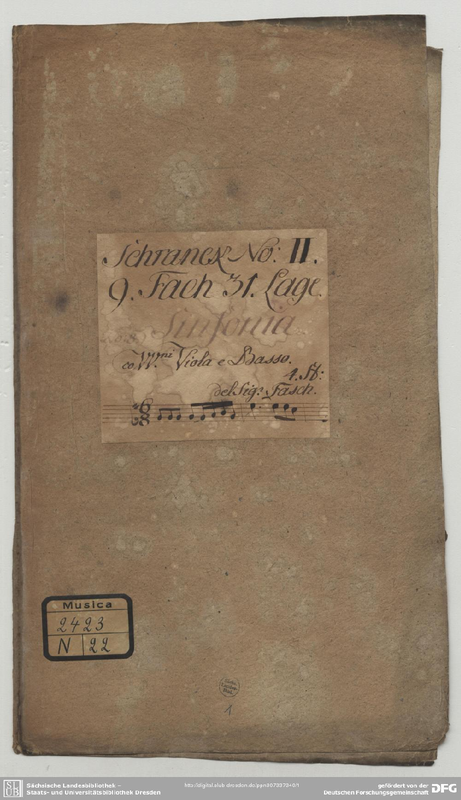 Schranck No: II.
9. Fach 31. Lage.
Sinfonia
co VV.ni Viola e Basso.
4. St:
Del Sig: Fasch.
Musica
2423
N 22
1
Sächsische Landesbibliothek –
Staats- und Universitätsbibliothek Dresden
gefördert von der
Deutschen Forschungsgemeinschaft
DFG